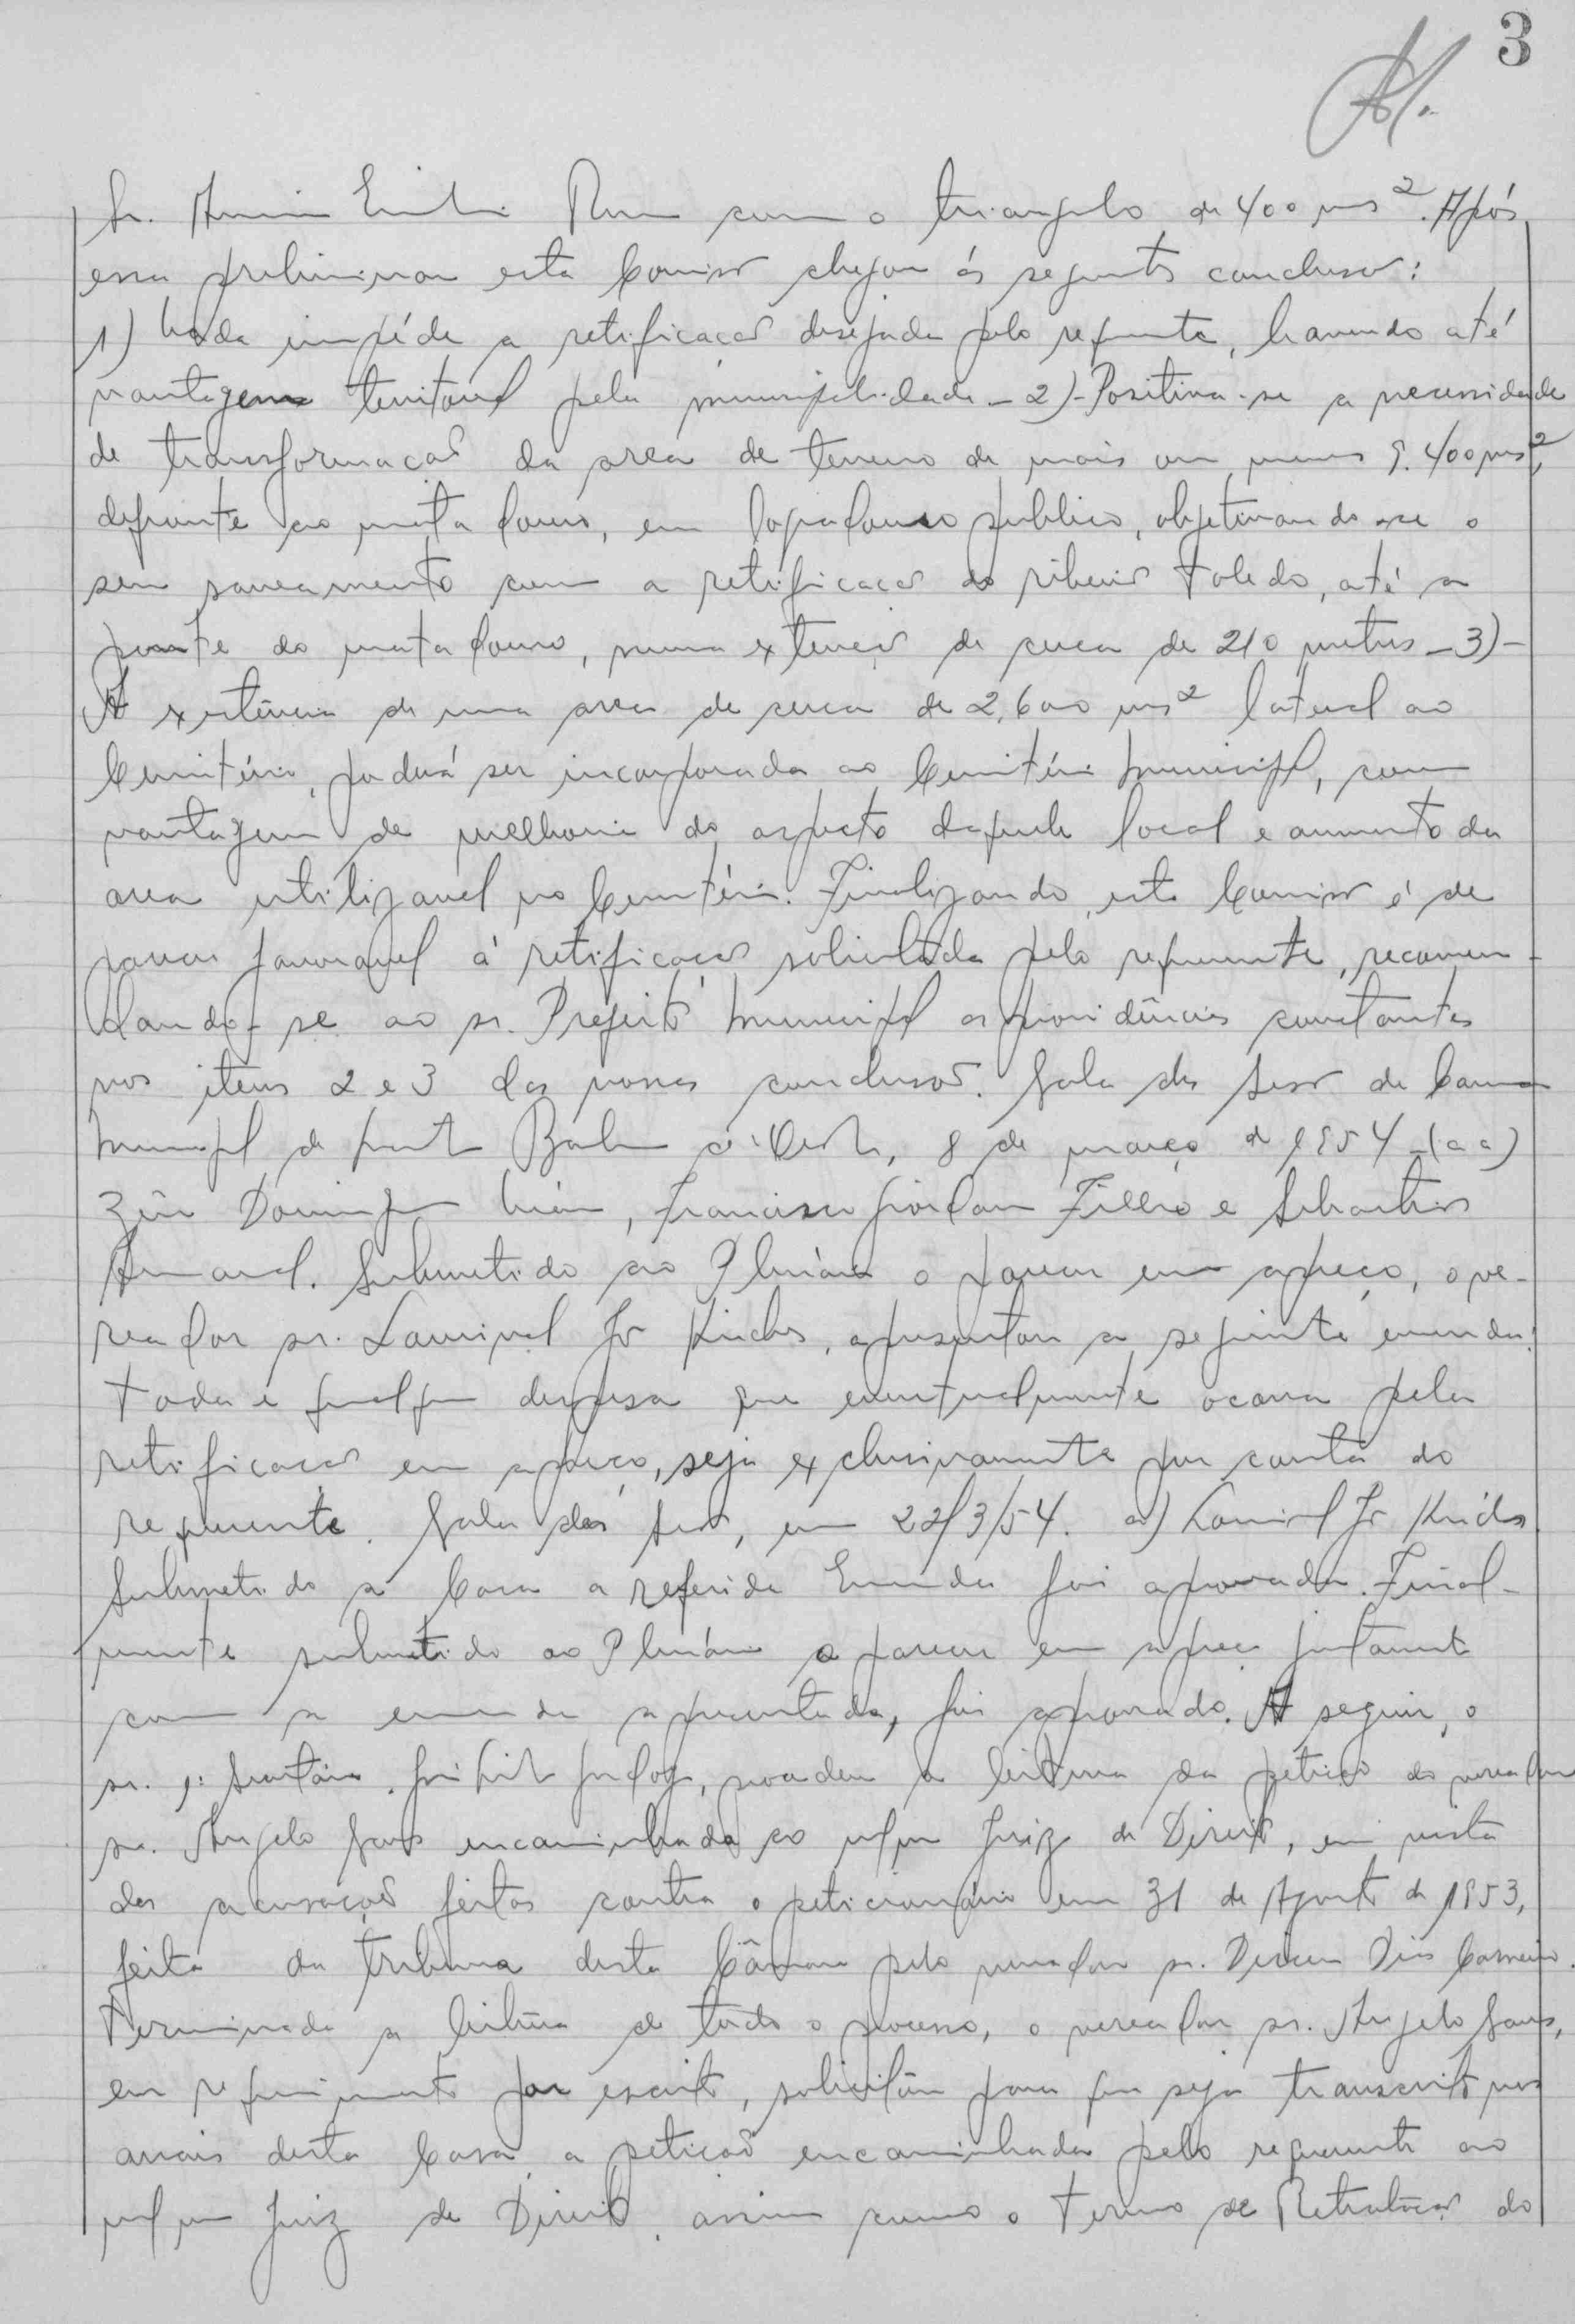 3
Sr. com o triangulo de 400 ms². Após
essa preliminar esta Comissão chegou ás seguintes conclusões:
1) Nada impéde a retificação desejada pelo requerente, havendo até
vantagem territorial pela municipalidade - 2) - Positiva-se a necessidade
de transformação da area de terreno de mais ou menos 9.400 ms²,
defronte ao matadouro, em logradouro publico, objetivando-se o
seu saneamento com a retificação do ribeirão Toledo, até a
ponte do matadouro, numa extensão de cerca de 210 metros - 3) -
A existência de uma area de cerca de 2.600 ms² lateral ao
Cemitério, poderá ser incorporada ao Cemitério Municipal, com
vantagem de melhoria do aspecto daquele local e aumento da
area utilizavel no Cemitério. Finalizando, esta Comissão é de
parecer favoravel á retificação solicitada pelo requerente, recomen-
dando-se ao sr. Prefeito Municipal as providências constantes
nos itens 2 e 3 das nossas conclusões. Sala das Sessões da Camara
Municipal de Santa Barbara d'Oeste, 8 de março de 1954 - (a a)
Domingos, Francisco Giordano Filho e Sebastião
Amaral. Submetido ao Plenário o parecer em apreço, o ve-
reador sr. Lourival apresentou a seguinte emenda:
Toda e qualquer despesa que eventualmente ocorra pela
retificação em apreço, seja exclusivamente por conta do
requerente. Sala das Sessões, em 22/3/54. a) Lourival
Submetido a Casa a referida Emenda foi aprovada. Final-
mente submetido ao Plenário o parecer em apreço juntamente
com a emenda apresentada, foi aprovado. A seguir, o
sr. 1º Secretário, procedeu a leitura da petição do vereador
sr. Angelo encaminhada ao Juiz de Direito, em vista
das acusações feitas contra o peticionário em 31 de Agosto de 1953,
feita da tribuna desta Câmara pelo vereador sr. Dirceu Dias Carneiro.
Terminada a leitura de todo o processo, o vereador sr. Angelo
em requerimento por escrito, solicitou para que seja transcrito nos
anais desta Casa, a petição encaminhada pelo requerente ao
Juiz de Direito, assim como o Termo de Retratação do